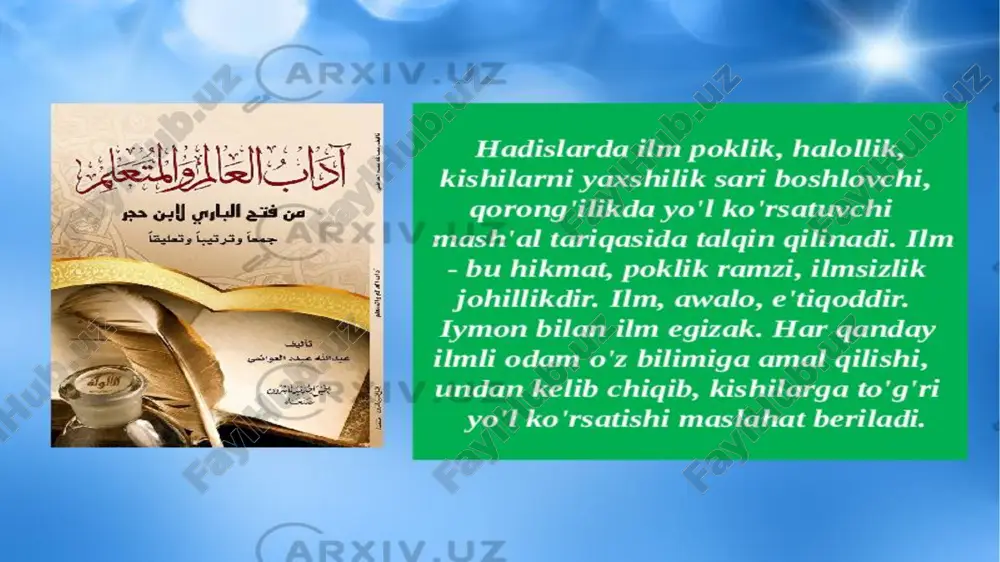 آدَابُ العَالِمِ وَالمُتَعَلِّمِ
من فتح الباري لابن حجر
جمعاً وترتيباً وتعليقاً
تأليف
عبدالله
Hadislarda ilm poklik, halollik,
kishilarni yaxshilik sari boshlovchi,
qorong'ilikda yo'l ko'rsatuvchi
mash'al tariqasida talqin qilinadi. Ilm
- bu hikmat, poklik ramzi, ilmsizlik
johillikdir. Ilm, awalo, e'tiqoddir.
Iymon bilan ilm egizak. Har qanday
ilmli odam o'z bilimiga amal qilishi,
undan kelib chiqib, kishilarga to'g'ri
yo'l ko'rsatishi maslahat beriladi.
ARXIV.UZ
ARXIV.UZ
ARXIV.UZ
ARXIV.UZ
FaylHub.uz
FaylHub.uz
FaylHub.uz
FaylHub.uz
FaylHub.uz
FaylHub.uz